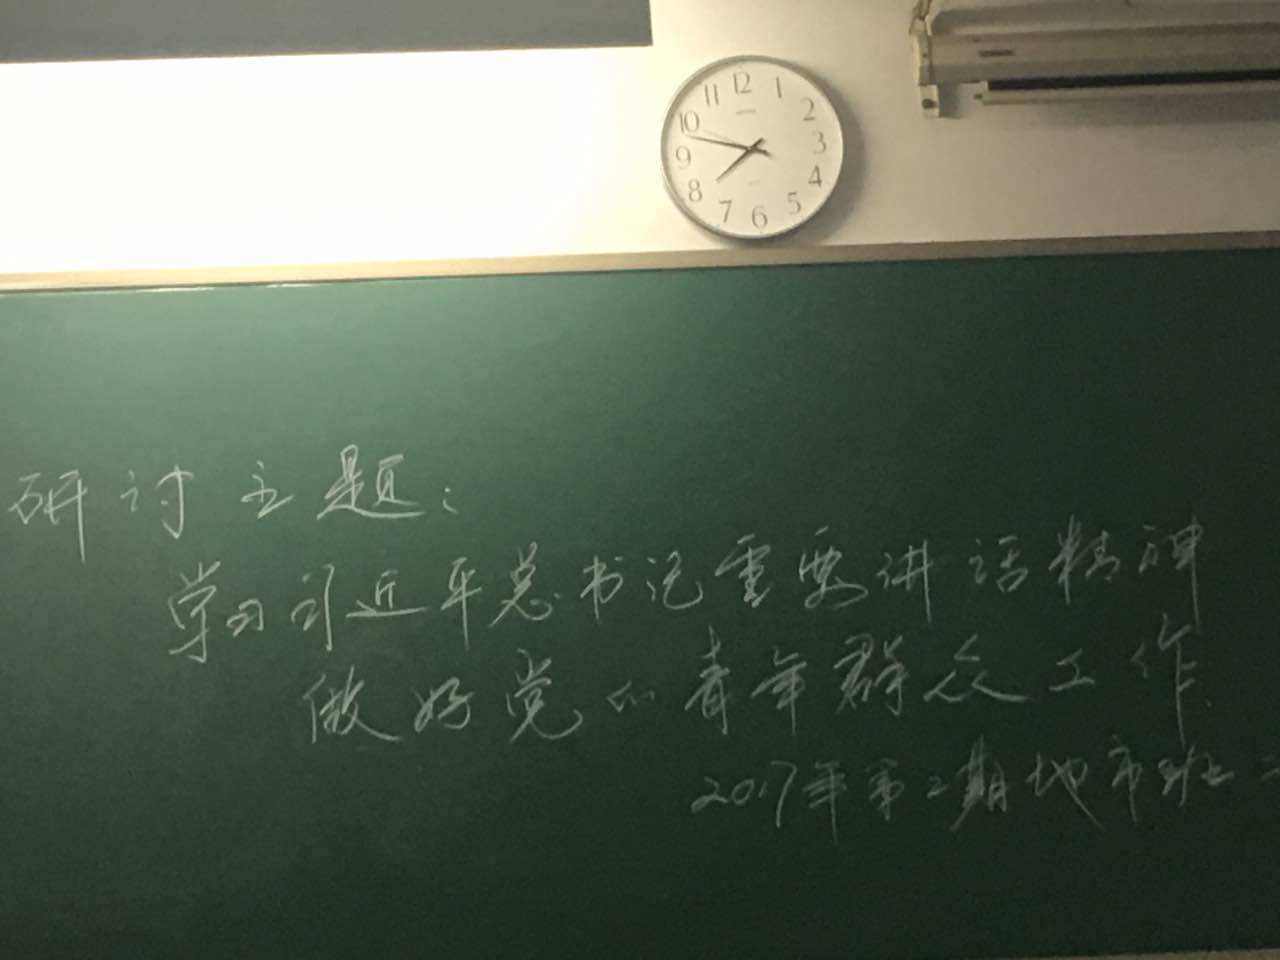 12
1
2
3
4
5
6
7
8
9
10
11
研讨主题：
学习习近平总书记重要讲话精神
做好党的青年群众工作
2017年第二期地市班